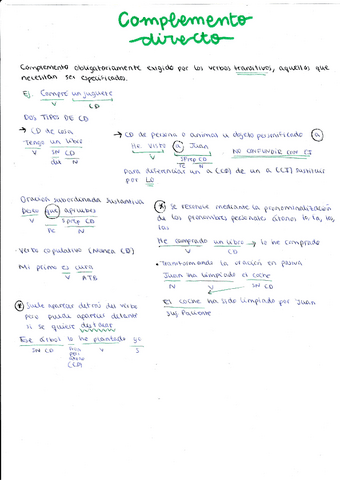 Complemento
directo
Complemento obligatoriamente exigido por los verbos transitivos, aquellos que
necesitan ser especificados.
Ej. Compré un juguete
V CD
DOS TIPOS DE CD
→ CD de cosa
Tengo un libro
V SN CD
det N
→ CD de persona o animal u objeto personificado (a)
He visto a Juan
V SPrep CD
N
NO CONFUNDIR CON CI
Para determinar un a (CD) de un a (CI) sustituir
por LO
Oración subordinada sustantiva
Deseo que apruebes
V CD
N
· Verbo copulativo (Nunca CD)
Mi primo es cura
V ATB
* Suele aparecer detrás del verbo
pero puede aparecer delante
si se quiere destacar
Ese árbol lo he plantado yo
SN CD V S
(CD)
* Se resuelve mediante la pronominalización
de los pronombres personales átonos lo, la, los,
las
He comprado un libro → lo he comprado
V CD
· Transformando la oración en pasiva
Juan ha limpiado el coche
N V SN CD
El coche ha sido limpiado por Juan
Suj Paciente